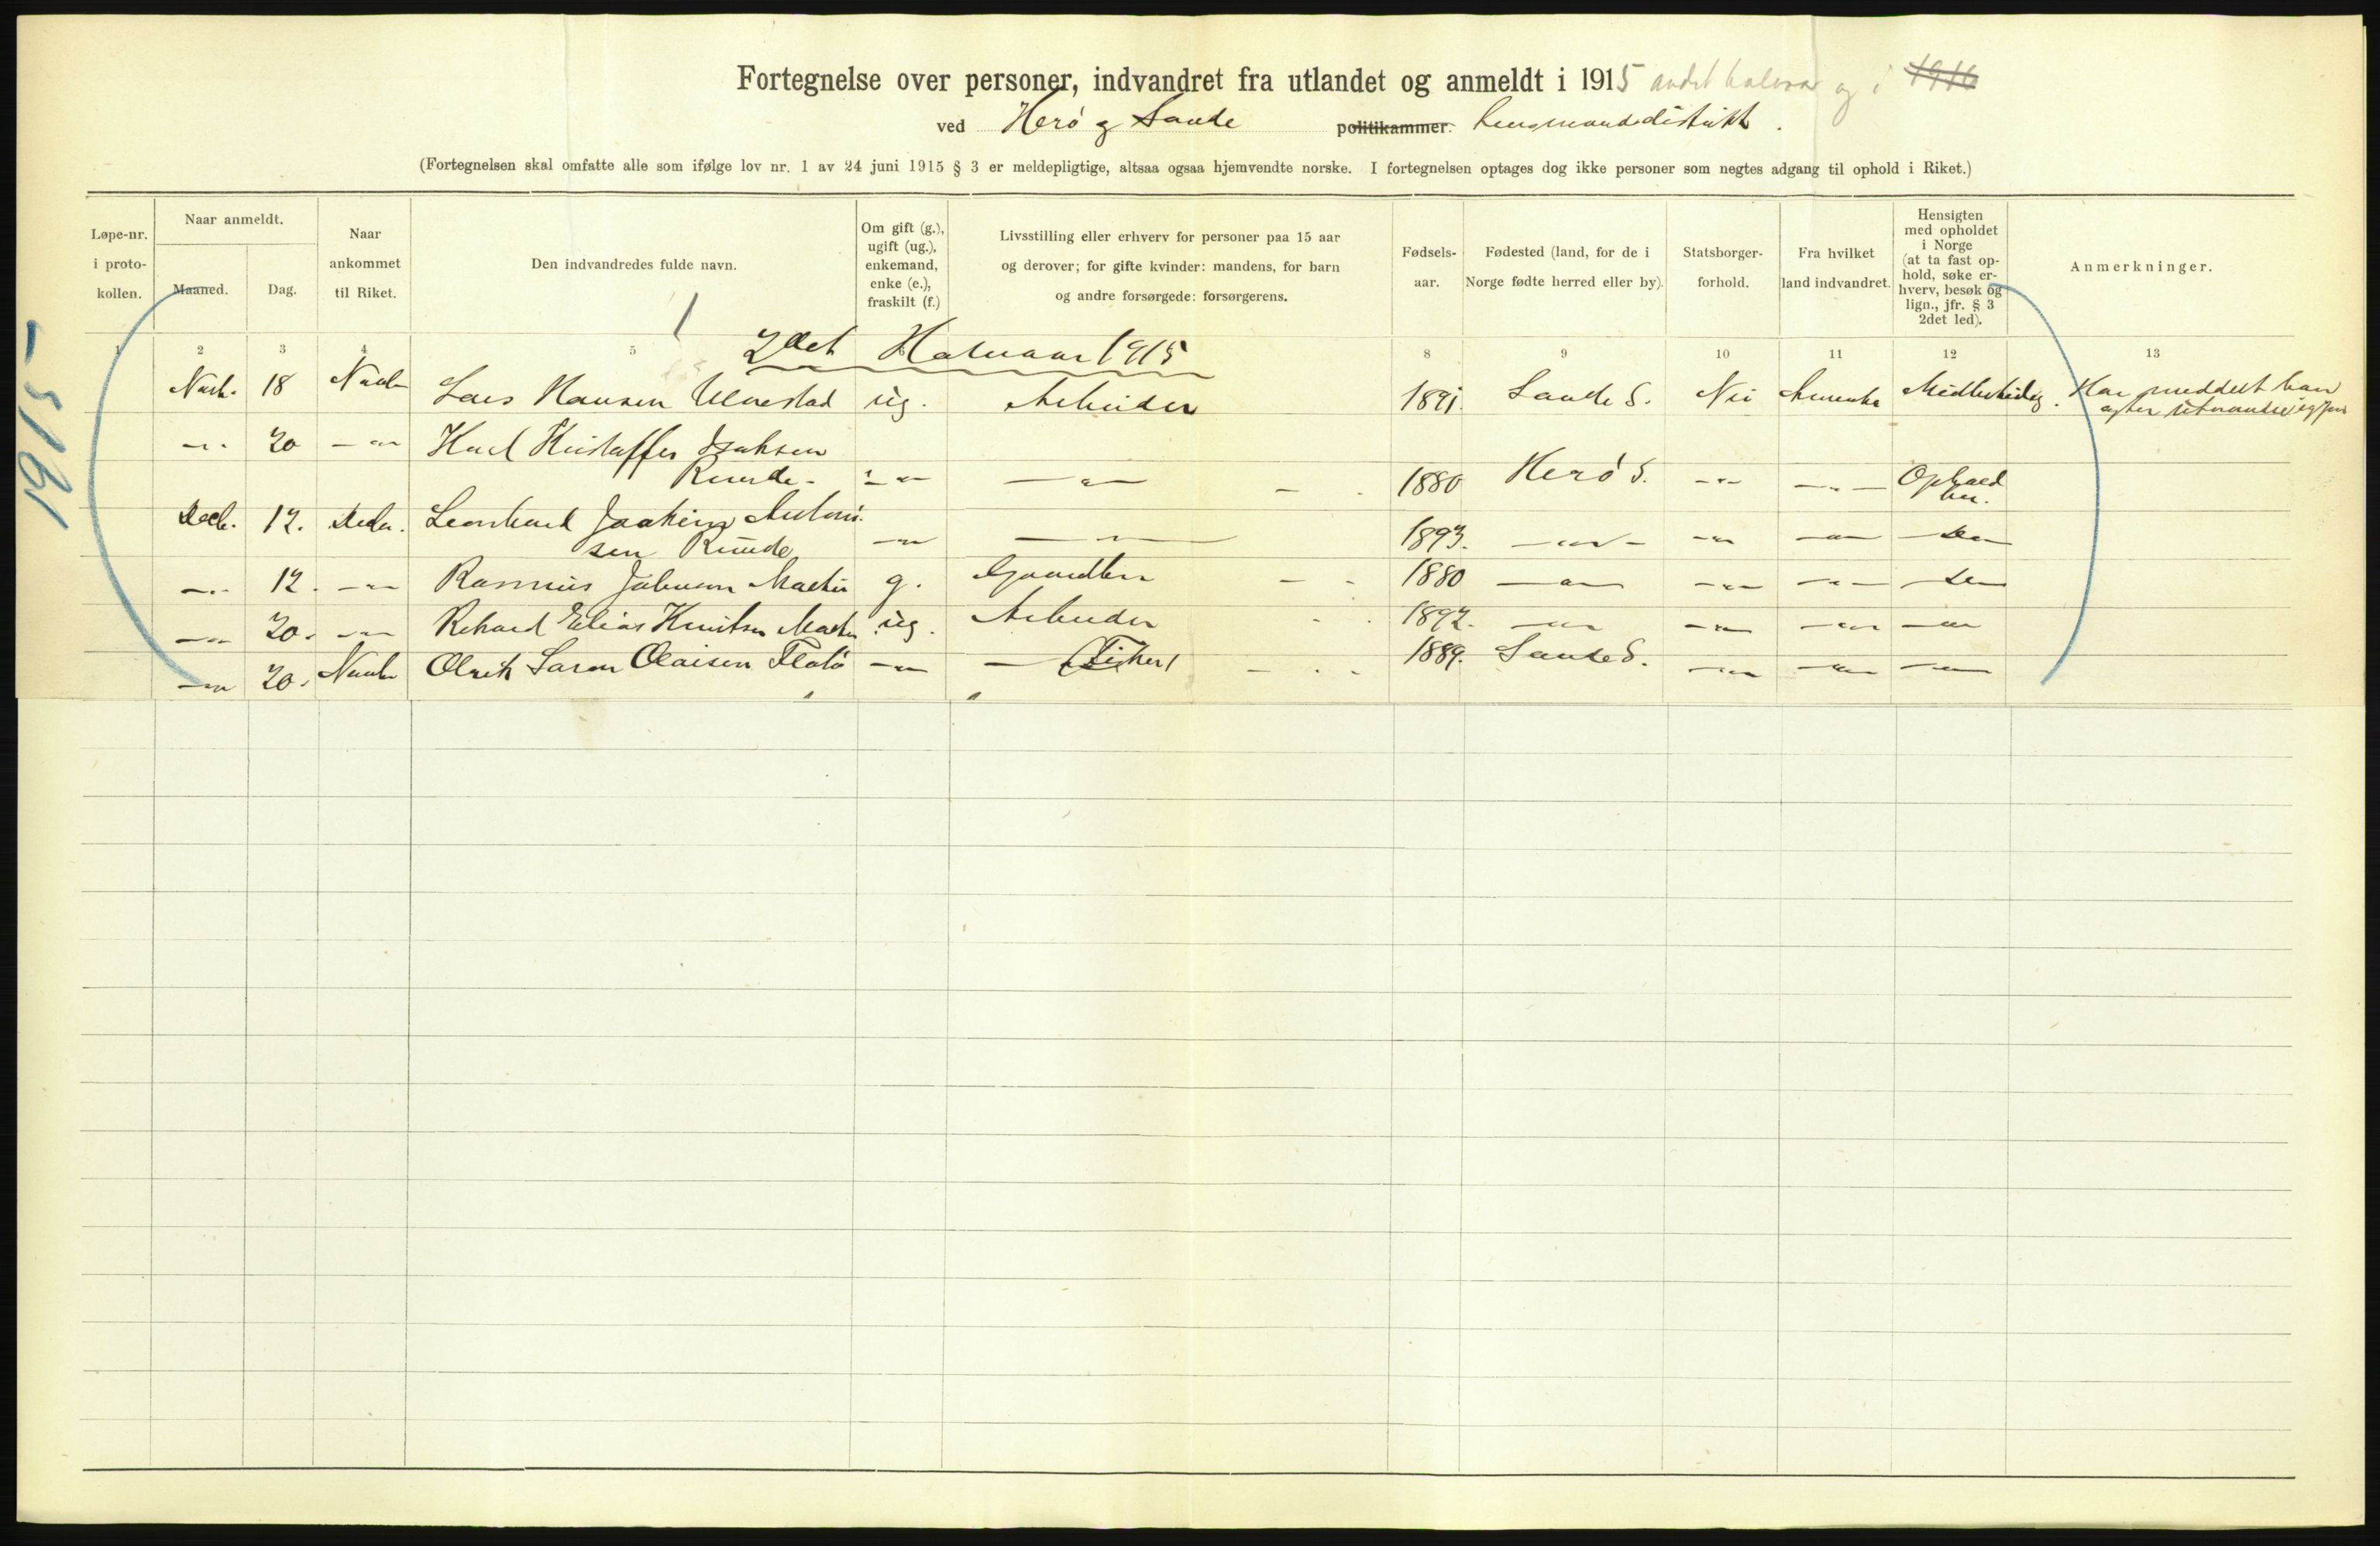 Fortegnelse over personer, indvandret fra utlandet og anmeldt i 1915 andet halvaar og i 1916
ved Herö og Sande politikammer. Lensmandsdistrikt.
(Fortegnelsen skal omfatte alle som ifølge lov nr. 1 av 24 juni 1915 § 3 er meldepligtige, altsaa ogsaa hjemvendte norske. I fortegnelsen optages dog ikke personer som negtes adgang til ophold i Riket.)
Løpe-nr. i proto-kollen.
Naar anmeldt.
Maaned.
Dag.
Naar ankommet til Riket.
Den indvandredes fulde navn.
Om gift (g.), ugift (ug.), enkemand, enke (e.), fraskilt (f.)
Livsstilling eller erhverv for personer paa 15 aar og derover; for gifte kvinder: mandens, for barn og andre forsørgede: forsørgerens.
Fødsels-aar.
Fødested (land, for de i Norge fødte herred eller by).
Statsborger-forhold.
Fra hvilket land indvandret.
Hensigten med opholdet i Norge (at ta fast op-hold, søke er-hverv, besøk og lign., jfr. § 3 2det led).
Anmerkninger.
1 2 3 4 5 8 9 10 11 12 13
1915
2det Halvaar 1915
18 Lars Hansen ug. Arbeider 1891. Sande S. Amerika Midlertidig. Har meddelt han
agter
-"- 20 -"- Karl Kristoffer Isaksen
Runde - -"- -"- 1880 Herö S. -"- -"- Ophold
Decb. 12. Decbr. Leonhard Joakim Antoni-
sen Runde -"- -"- 1893. -"- -"- -"-
-"- 12. -"- Rasmus Johnsen g. 1880 -"- -"- -"-
-"- 20. -"- Rikard Elias Knutsen ug. Arbeider 1892. -"- -"- -"- -"-
-"- 20. Olaisen Flatö -"- -"- (Fisker) 1889. Sande S. -"- -"- -"-